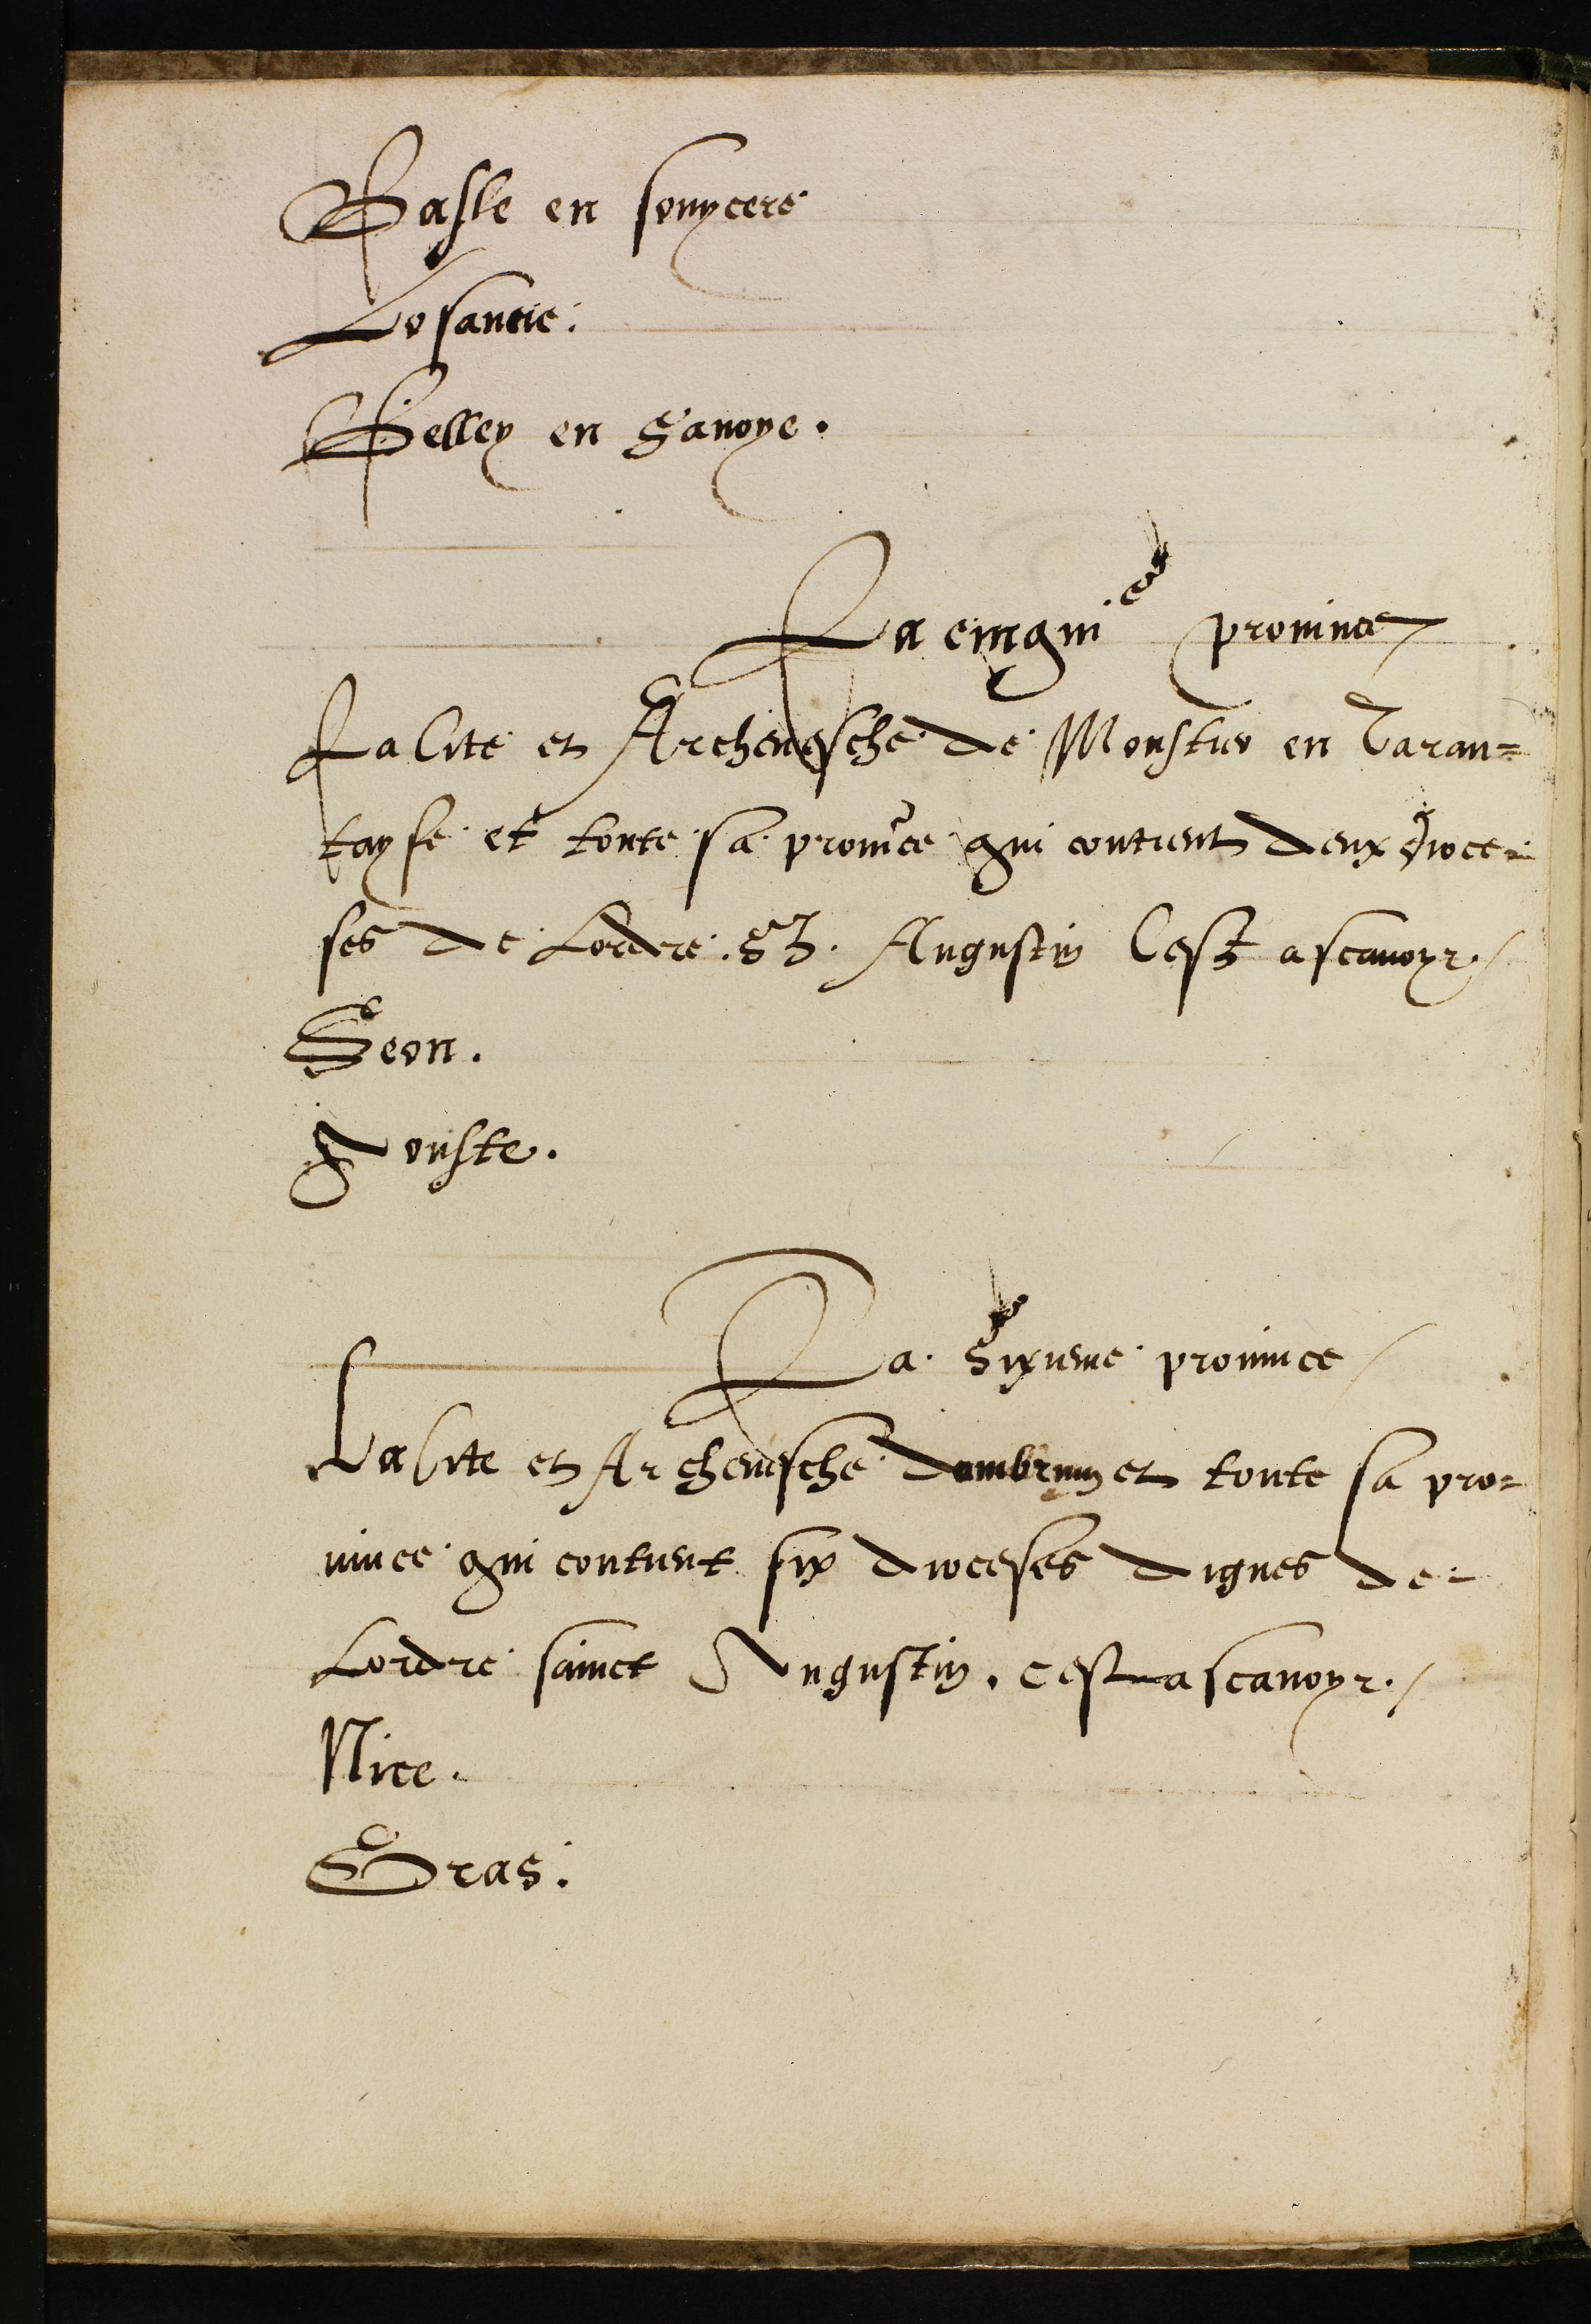 Basle en souycere
Losanne.
Belley en Sauoye.
La cinqui e prouince
La Cite et Archeuesche de Monstier en Taran=
tayse et toute sa prouice qui contient deux dioce-
ses de Lordre St. Augustin Cest ascauoyr /
Seon.
Aouste.
La Sixieme prouince /
La Cite et Archeuesche dambrun et toute sa pro-
uince qui contient six dioceses dignes de-
Lordre sainct Augustin. cest ascauoyr. /
Nice.
Gras.